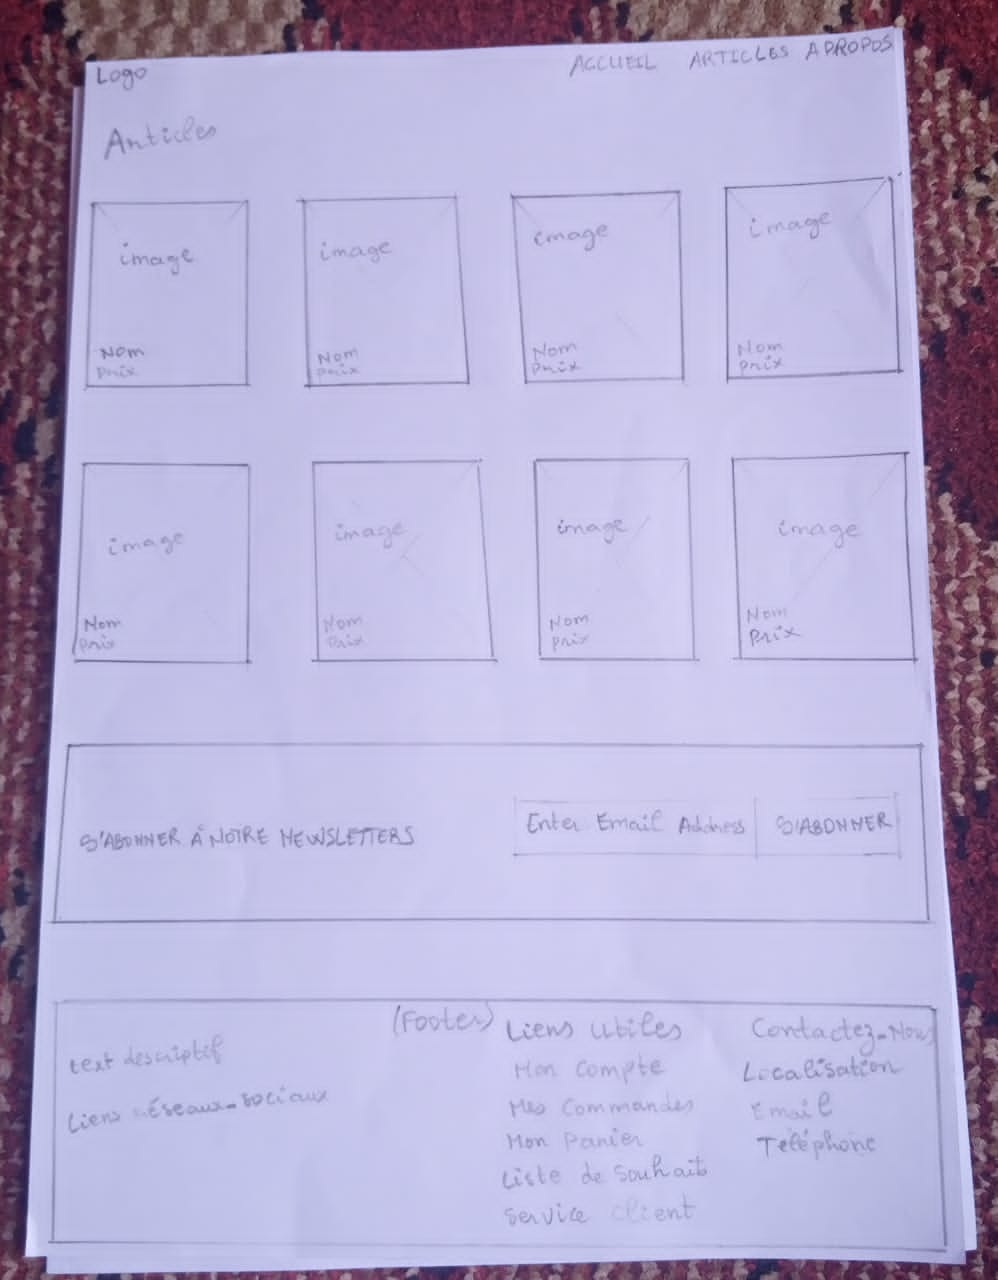 Logo
ACCUEIL ARTICLES APROPOS
Articles
image image image image
Nom Nom Nom Nom
Prix Prix Prix Prix
image image image image
Nom Nom Nom Nom
Prix Prix Prix Prix
S'ABONNER À NOTRE NEWSLETTERS
Enter Email Address S'ABONNER
(Footer)
text descriptif
Liens réseaux-sociaux
Liens utiles
Mon Compte
Mes Commandes
Mon Panier
Liste de Souhaits
Service client
Contactez-Nous
Localisation
Email
Téléphone